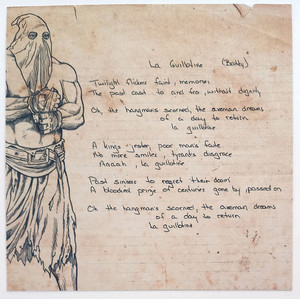 La Guillotine (Bobby)
Twilight flickers faint, memories
The past cast to and fro, without dignity
Oh the hangman's scorned, the axeman dreams
of a day to return
la guillotine
A kings jester, poor man's fate
No more smiles, tyrants disgrace
Aaaah, la guillotine
Past sinners to regret their deeds
A bloodred prince of centuries gone by, passed on
Oh the hangman's scorned, the axeman dreams
of a day to return
la guillotine